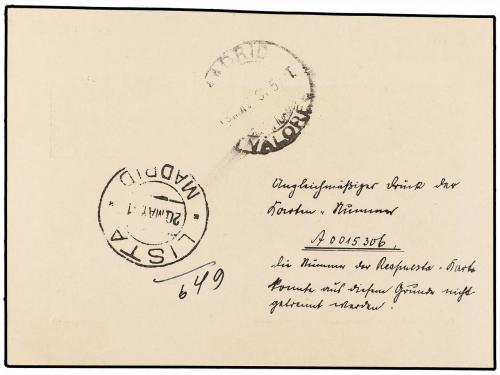 MADRID
VALORES
MADRID
20 MAY. 1
LISTA
649
Ungleichmäßiger Druck der
Karten-Nummer
A0015306.
Die Nummer der Respuesta-Karte
konnte aus diesem Grunde nicht
getrennt werden.